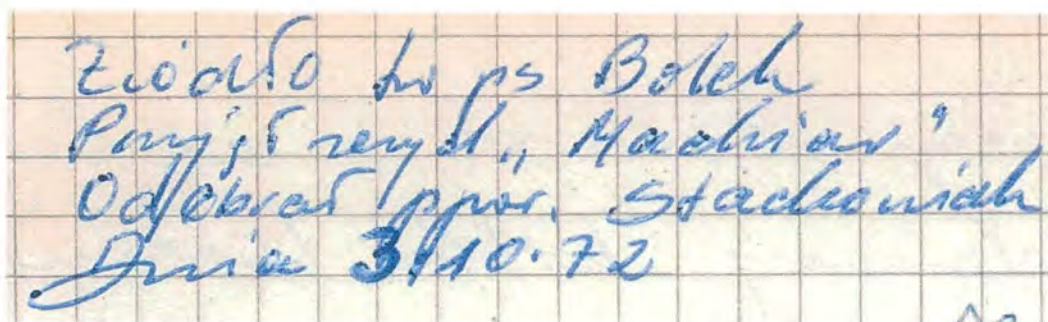 Źródło tw ps Bolek
Przyjął rezyd. „Madziar"
Odebrał ppor. Stachowiak
Dnia 3.10.72